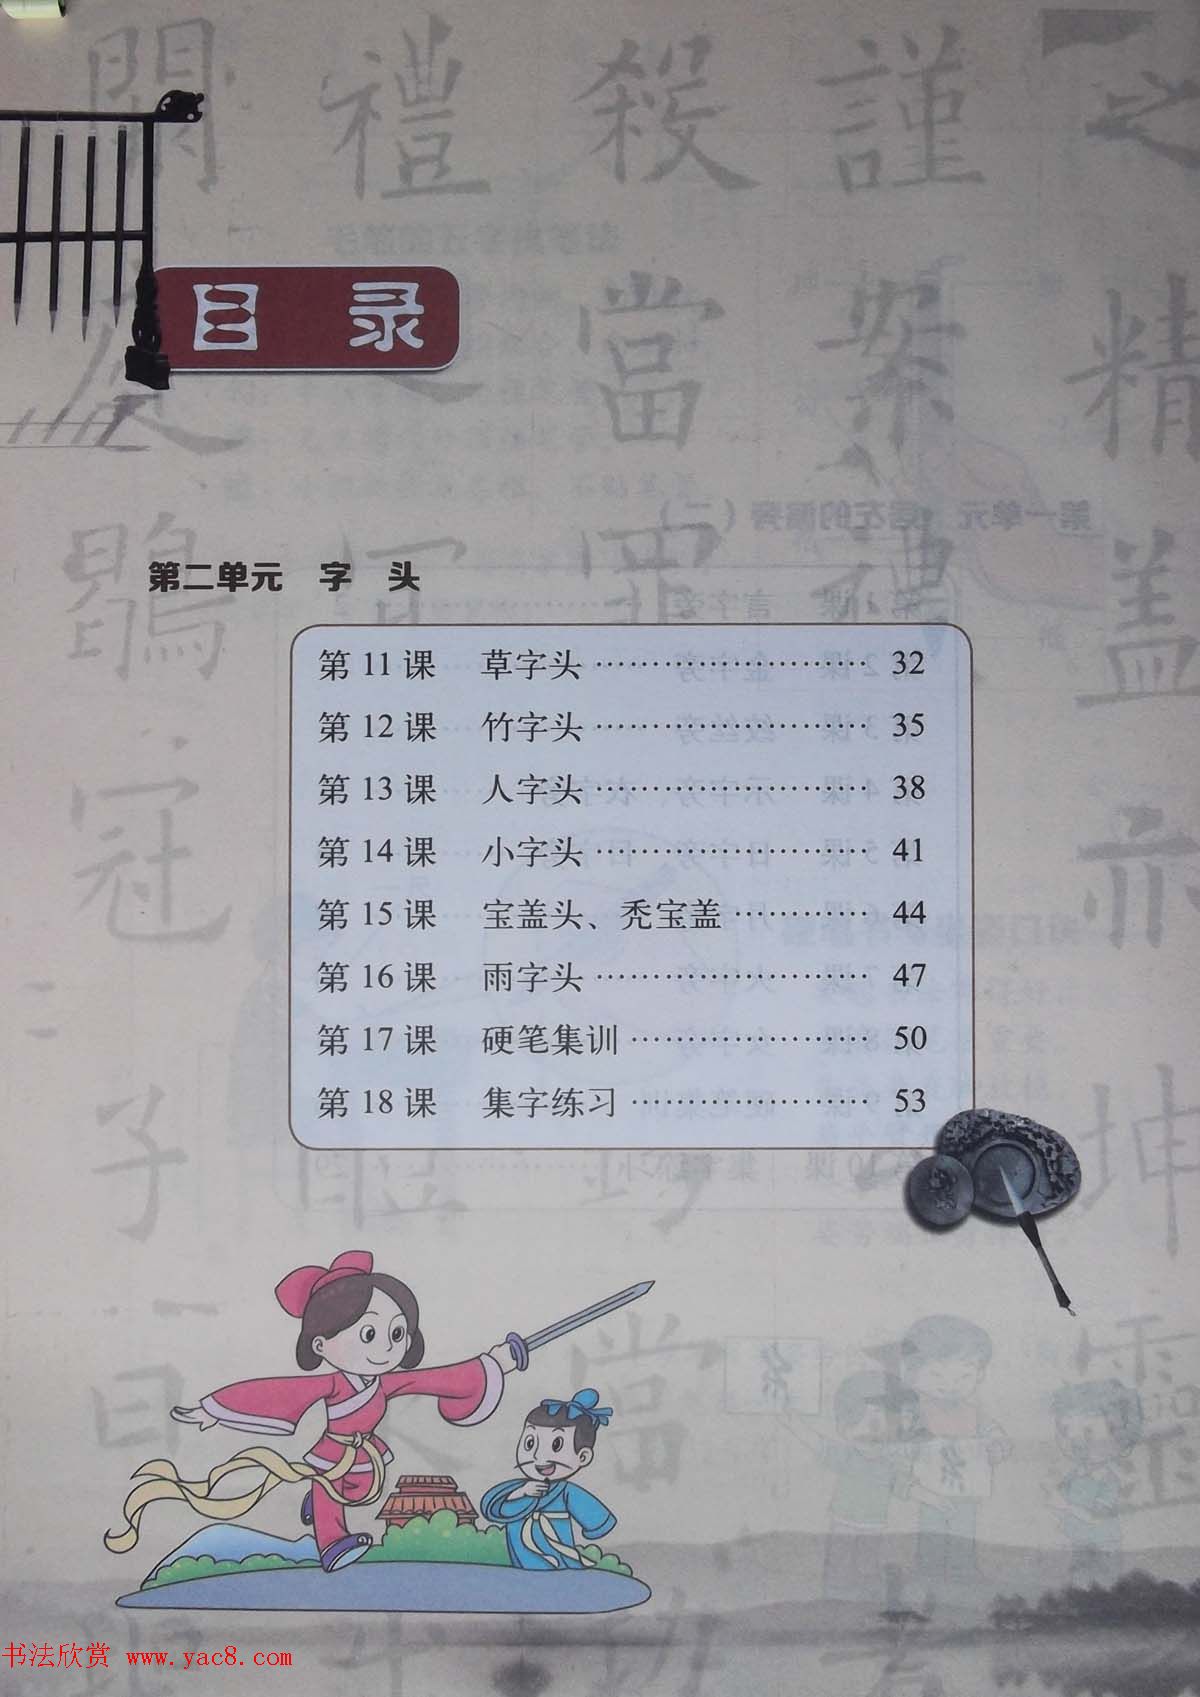 目 录
第二单元 字 头
第 11 课 草字头 ························ 32
第 12 课 竹字头 ························ 35
第 13 课 人字头 ························ 38
第 14 课 小字头 ························ 41
第 15 课 宝盖头、秃宝盖 ············ 44
第 16 课 雨字头 ························ 47
第 17 课 硬笔集训 ····················· 50
第 18 课 集字练习 ····················· 53
书法欣赏 www.yac8.com